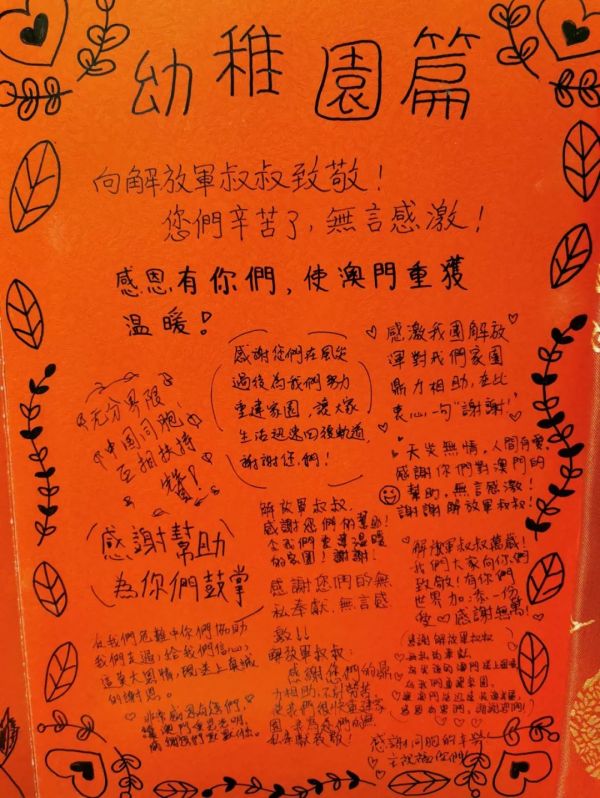 幼稚園篇
向解放軍叔叔致敬！
您們辛苦了，無言感激！
感恩有你們，使澳門重獲
溫暖！
感謝您們在風災
過後為我們努力
重建家園，讓大家
生活迅速回復軌道，
謝謝您們！
感激我國解放
軍對我們家園
鼎力相助，在此
衷心一句"謝謝！"
無分界限
中國同胞
互相扶持
讚！
天災無情，人間有愛，
感謝你們對澳門的
幫助，無言感激！
謝謝解放軍叔叔！
感謝幫助
為你們鼓掌
解放軍叔叔：
感謝您們的幫助！
令我們重建溫暖
的家園！謝謝！
感謝您們的無
私奉獻，無言感
激！！
解放軍叔叔萬歲！
我們大家向你們
致敬！有你們
世界加添一份
愛 感謝無窮！
在我們危難中你們協助
我們走過，給我們信心，
這莫大恩情，現送上真誠
的謝意。
非常感恩有您們，
讓澳門重見光明，
解放軍叔叔：
感謝您們的鼎
力相助，不怕勞苦
使我們很快重建家
園
感謝解放軍叔叔
無私的奉獻
為我們重建家園，
謝謝您們！
感謝同胞的辛勞